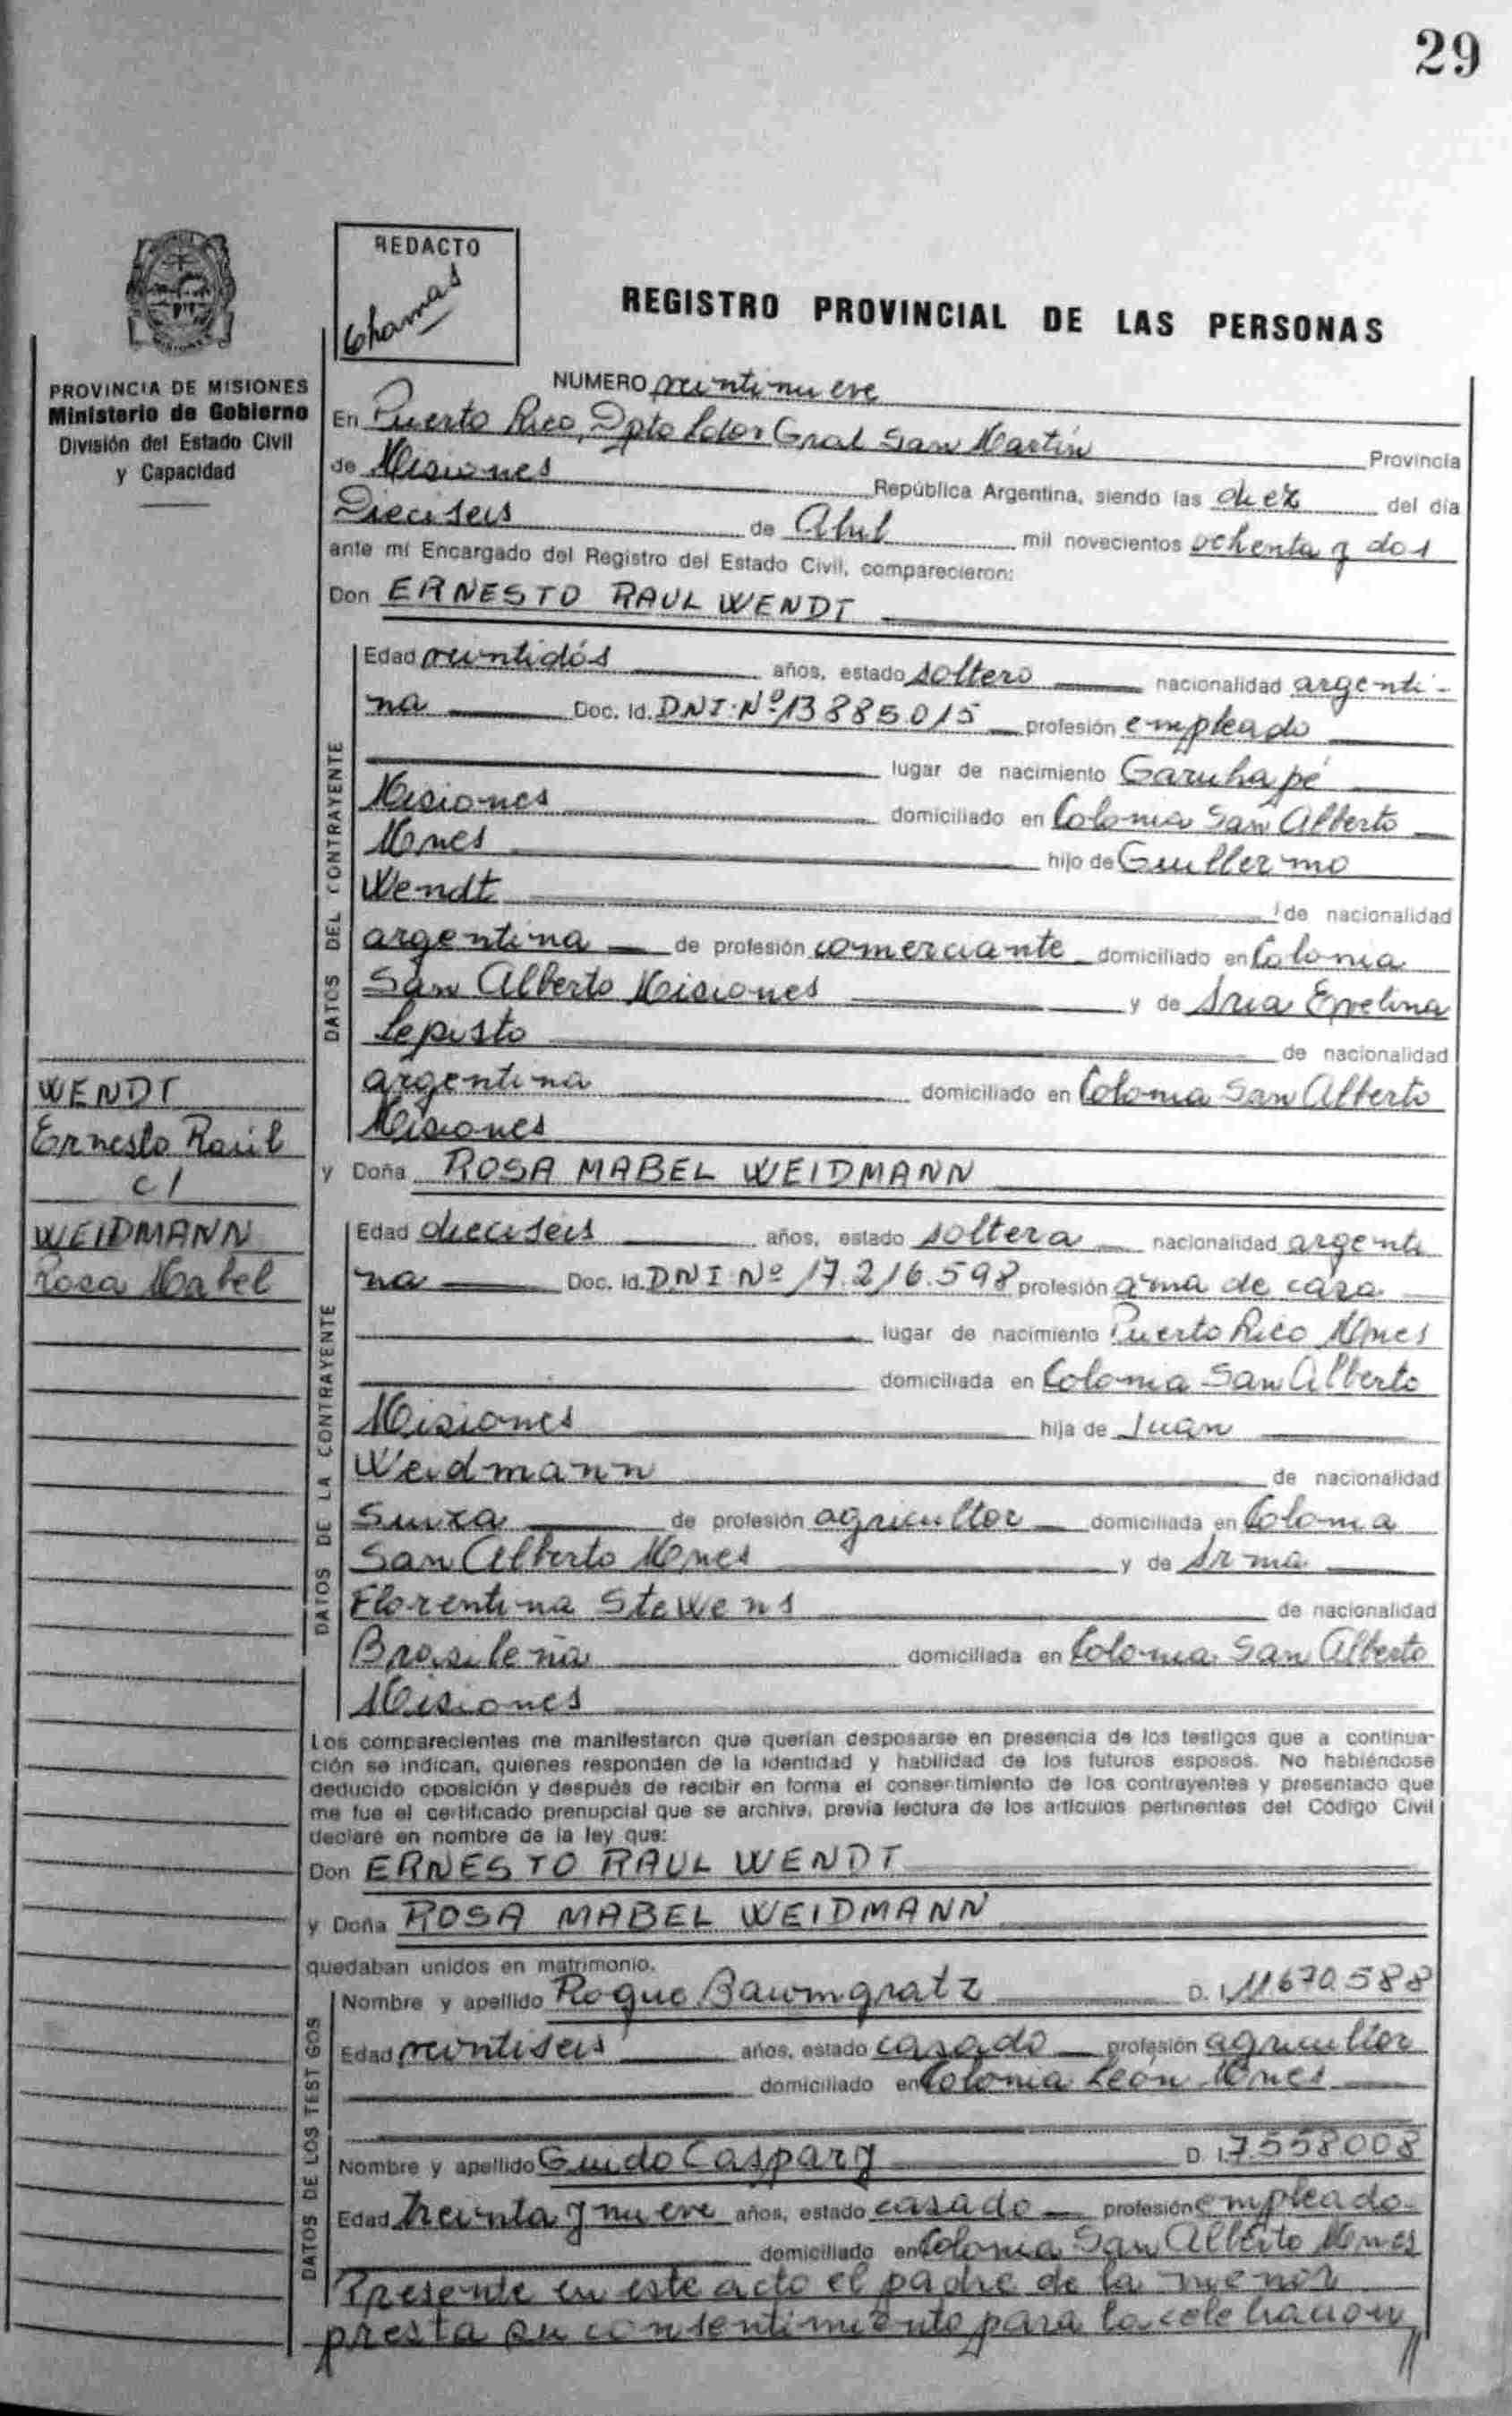 29
REDACTO
Chamas
REGISTRO PROVINCIAL DE LAS PERSONAS
PROVINCIA DE MISIONES
Ministerio de Gobierno
División del Estado Civil
y Capacidad
NUMERO veintinueve
En Puerto Rico, Dpto Ldor Gral San Martín Provincia
de Misiones República Argentina, siendo las diez del día
Dieciseis de Abril mil novecientos ochenta y dos
ante mí Encargado del Registro del Estado Civil, comparecieron:
Don ERNESTO RAUL WENDT
DATOS DEL CONTRAYENTE
Edad veintidós años, estado soltero nacionalidad argenti-
na Doc. Id. DNI. Nº 13885.015 profesión empleado
lugar de nacimiento Garuhapé
Misiones domiciliado en Colonia San Alberto
Mnes hijo de Guillermo
Wendt de nacionalidad
argentina de profesión comerciante domiciliado en Colonia
San Alberto Misiones y de Iria Evelina
Lepisto de nacionalidad
argentina domiciliado en Colonia San Alberto
Misiones
WENDT
Ernesto Raúl
c/
WEIDMANN
Rosa Mabel
y Doña ROSA MABEL WEIDMANN
DATOS DE LA CONTRAYENTE
Edad dieciseis años, estado soltera nacionalidad argenti
na Doc. Id. DNI Nº 17.216.598 profesión ama de casa
lugar de nacimiento Puerto Rico Mnes
domiciliada en Colonia San Alberto
Misiones hija de Juan
Weidmann de nacionalidad
Suiza de profesión agricultor domiciliada en Colonia
San Alberto Mnes y de Irma
Florentina Stewens de nacionalidad
Brasileña domiciliada en Colonia San Alberto
Misiones
Los comparecientes me manifestaron que querían desposarse en presencia de los testigos que a continua-
ción se indican, quienes responden de la identidad y habilidad de los futuros esposos. No habiéndose
deducido oposición y después de recibir en forma el consentimiento de los contrayentes y presentado que
me fue el certificado prenupcial que se archiva, previa lectura de los artículos pertinentes del Código Civil
declaré en nombre de la ley que:
Don ERNESTO RAUL WENDT
y Doña ROSA MABEL WEIDMANN
quedaban unidos en matrimonio.
DATOS DE LOS TESTIGOS
Nombre y apellido Roque Baumgratz D. I. 11670.588
Edad veintiseis años, estado casado profesión agricultor
domiciliado en Colonia León Mnes
Nombre y apellido Guido Caspary D. I. 7558008
Edad treinta y nueve años, estado casado profesión empleado
domiciliado en Colonia San Alberto Mnes
Presente en este acto el padre de la menor
presta su consentimiento para la celebración
//